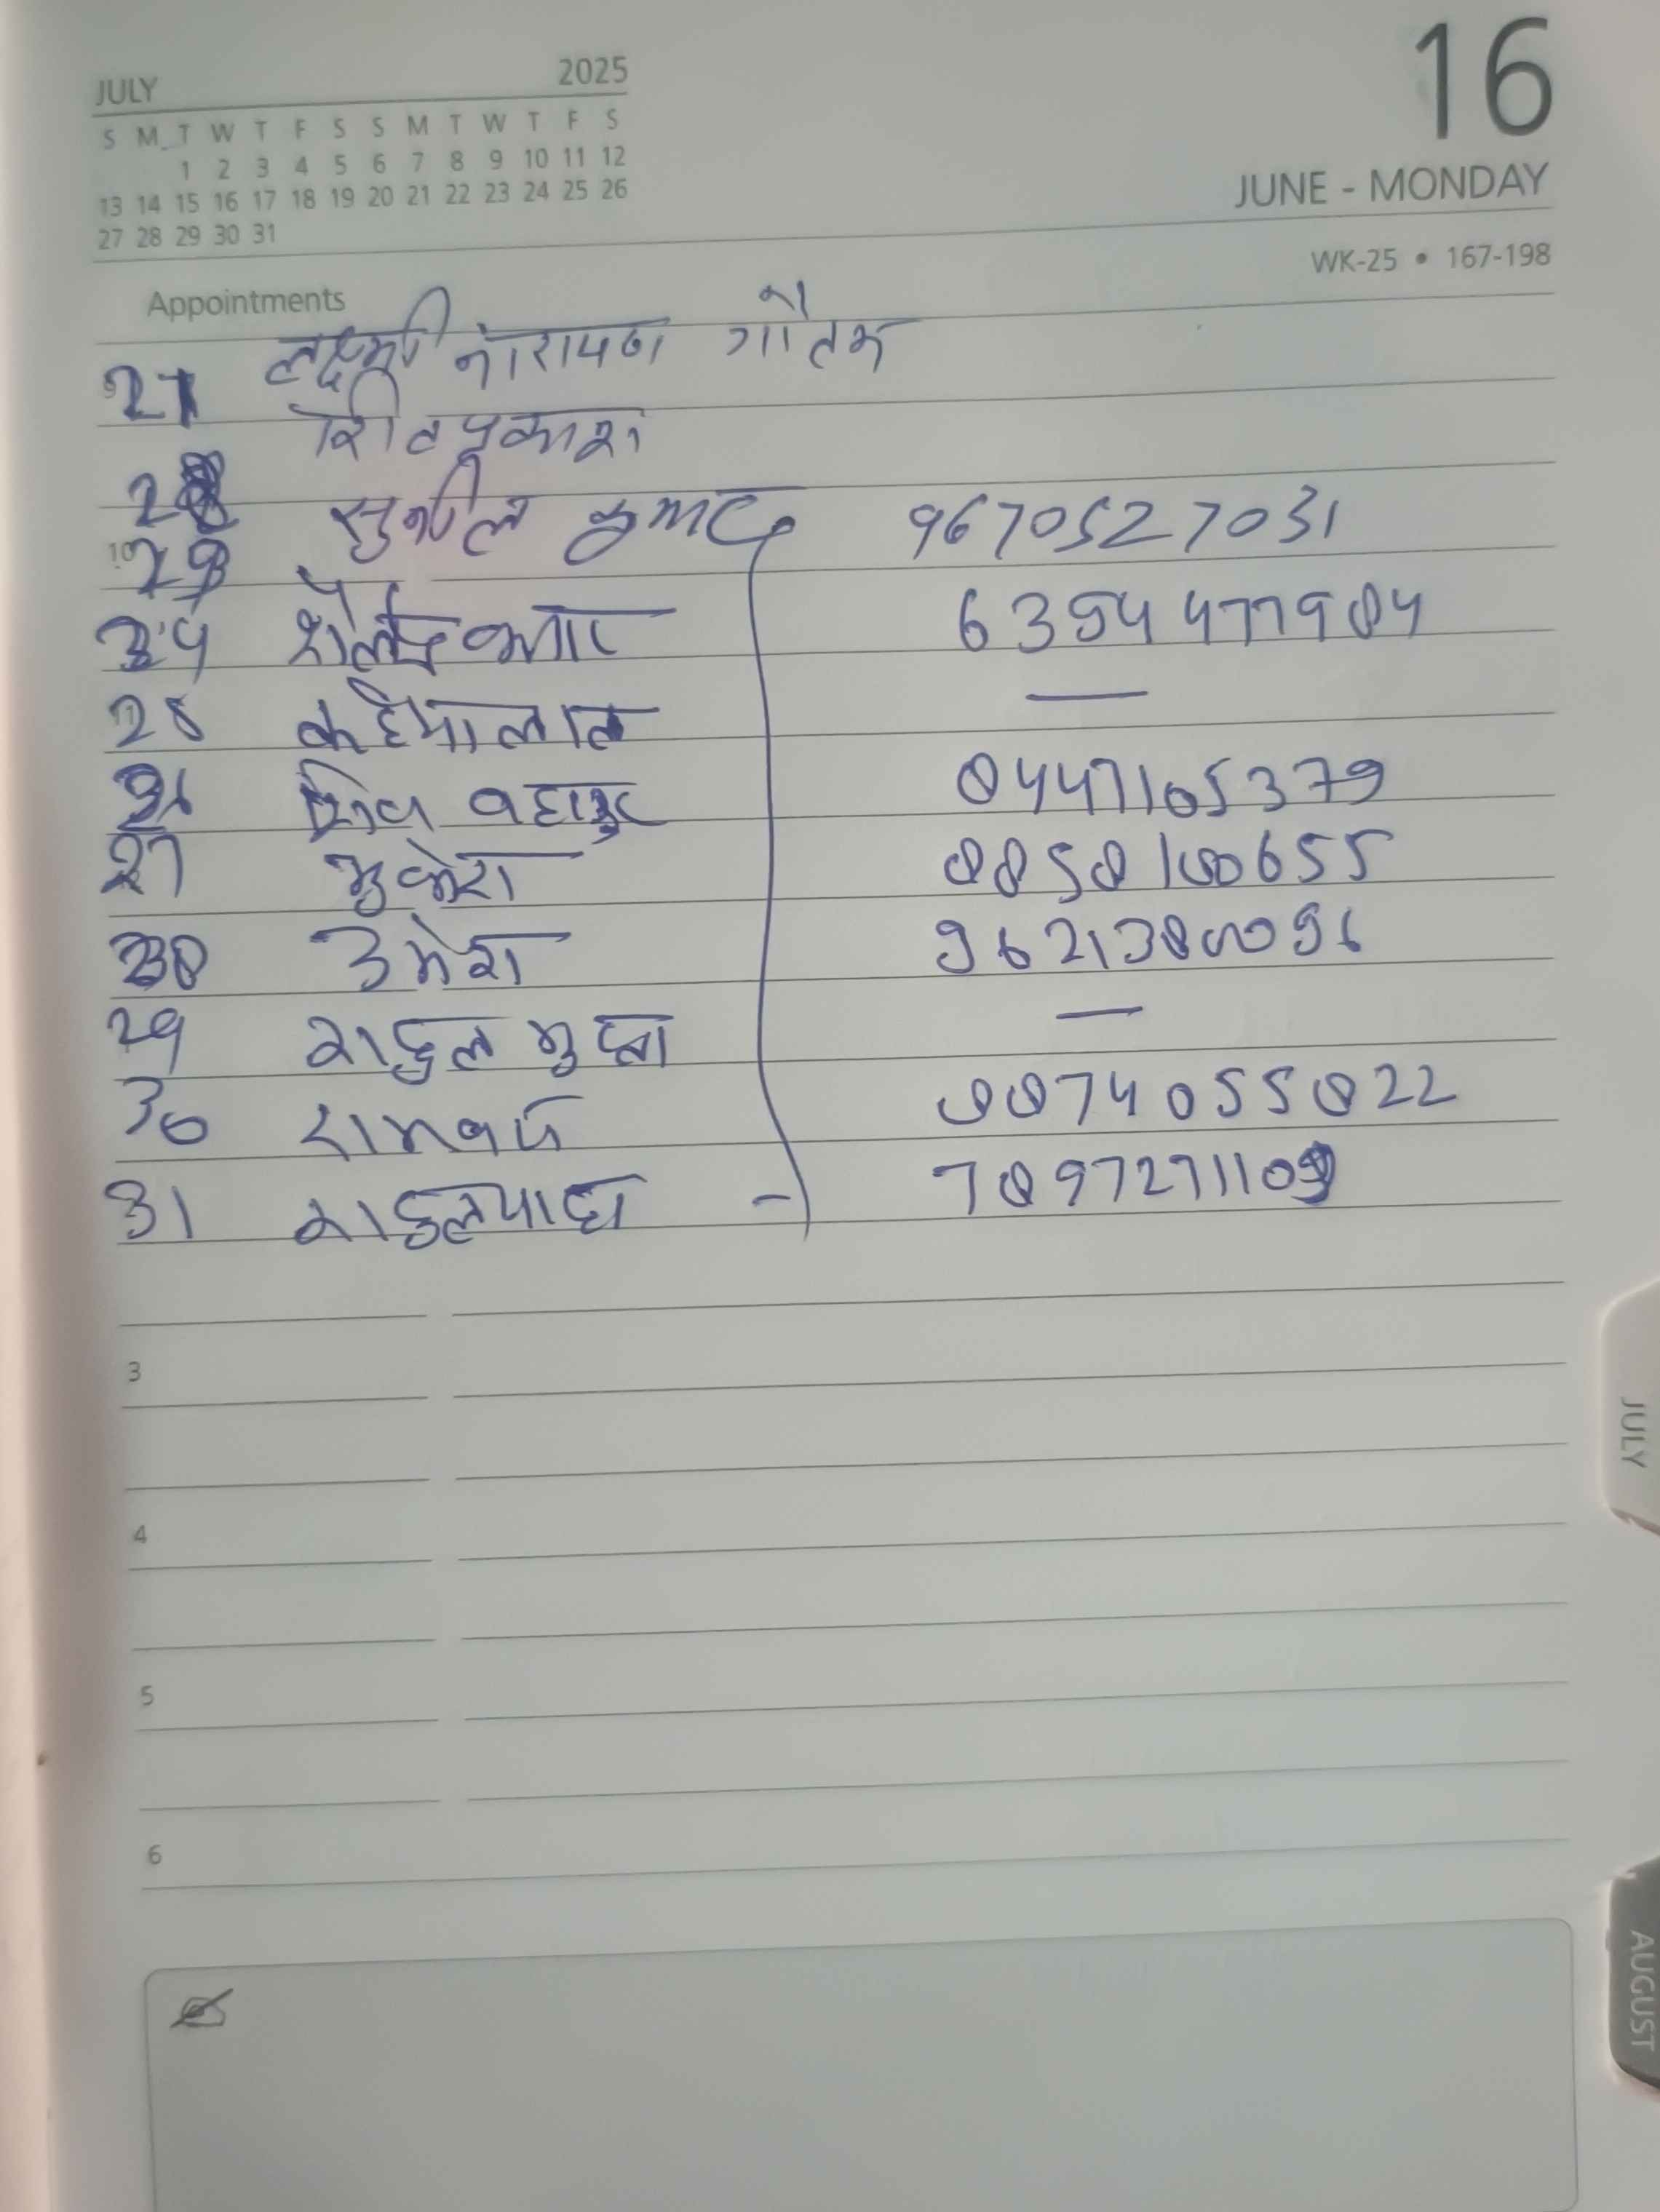 JULY 2025
S M T W T F S S M T W T F S
1 2 3 4 5 6 7 8 9 10 11 12
13 14 15 16 17 18 19 20 21 22 23 24 25 26
27 28 29 30 31
16
JUNE - MONDAY
WK-25 • 167-198
Appointments
21 लक्ष्मी नारायण गौतम
शिवप्रकाश
सुनील कुमार 9670527031
शैलेन्द्र कुमार 6394477984
25 कन्हैयालाल —
शिव बहादुर 8447165379
27 मुकेश
उमेश
29 राहुल गुप्ता —
30 8874055822
31 राहुल -
3
4
5
6
JULY
AUGUST